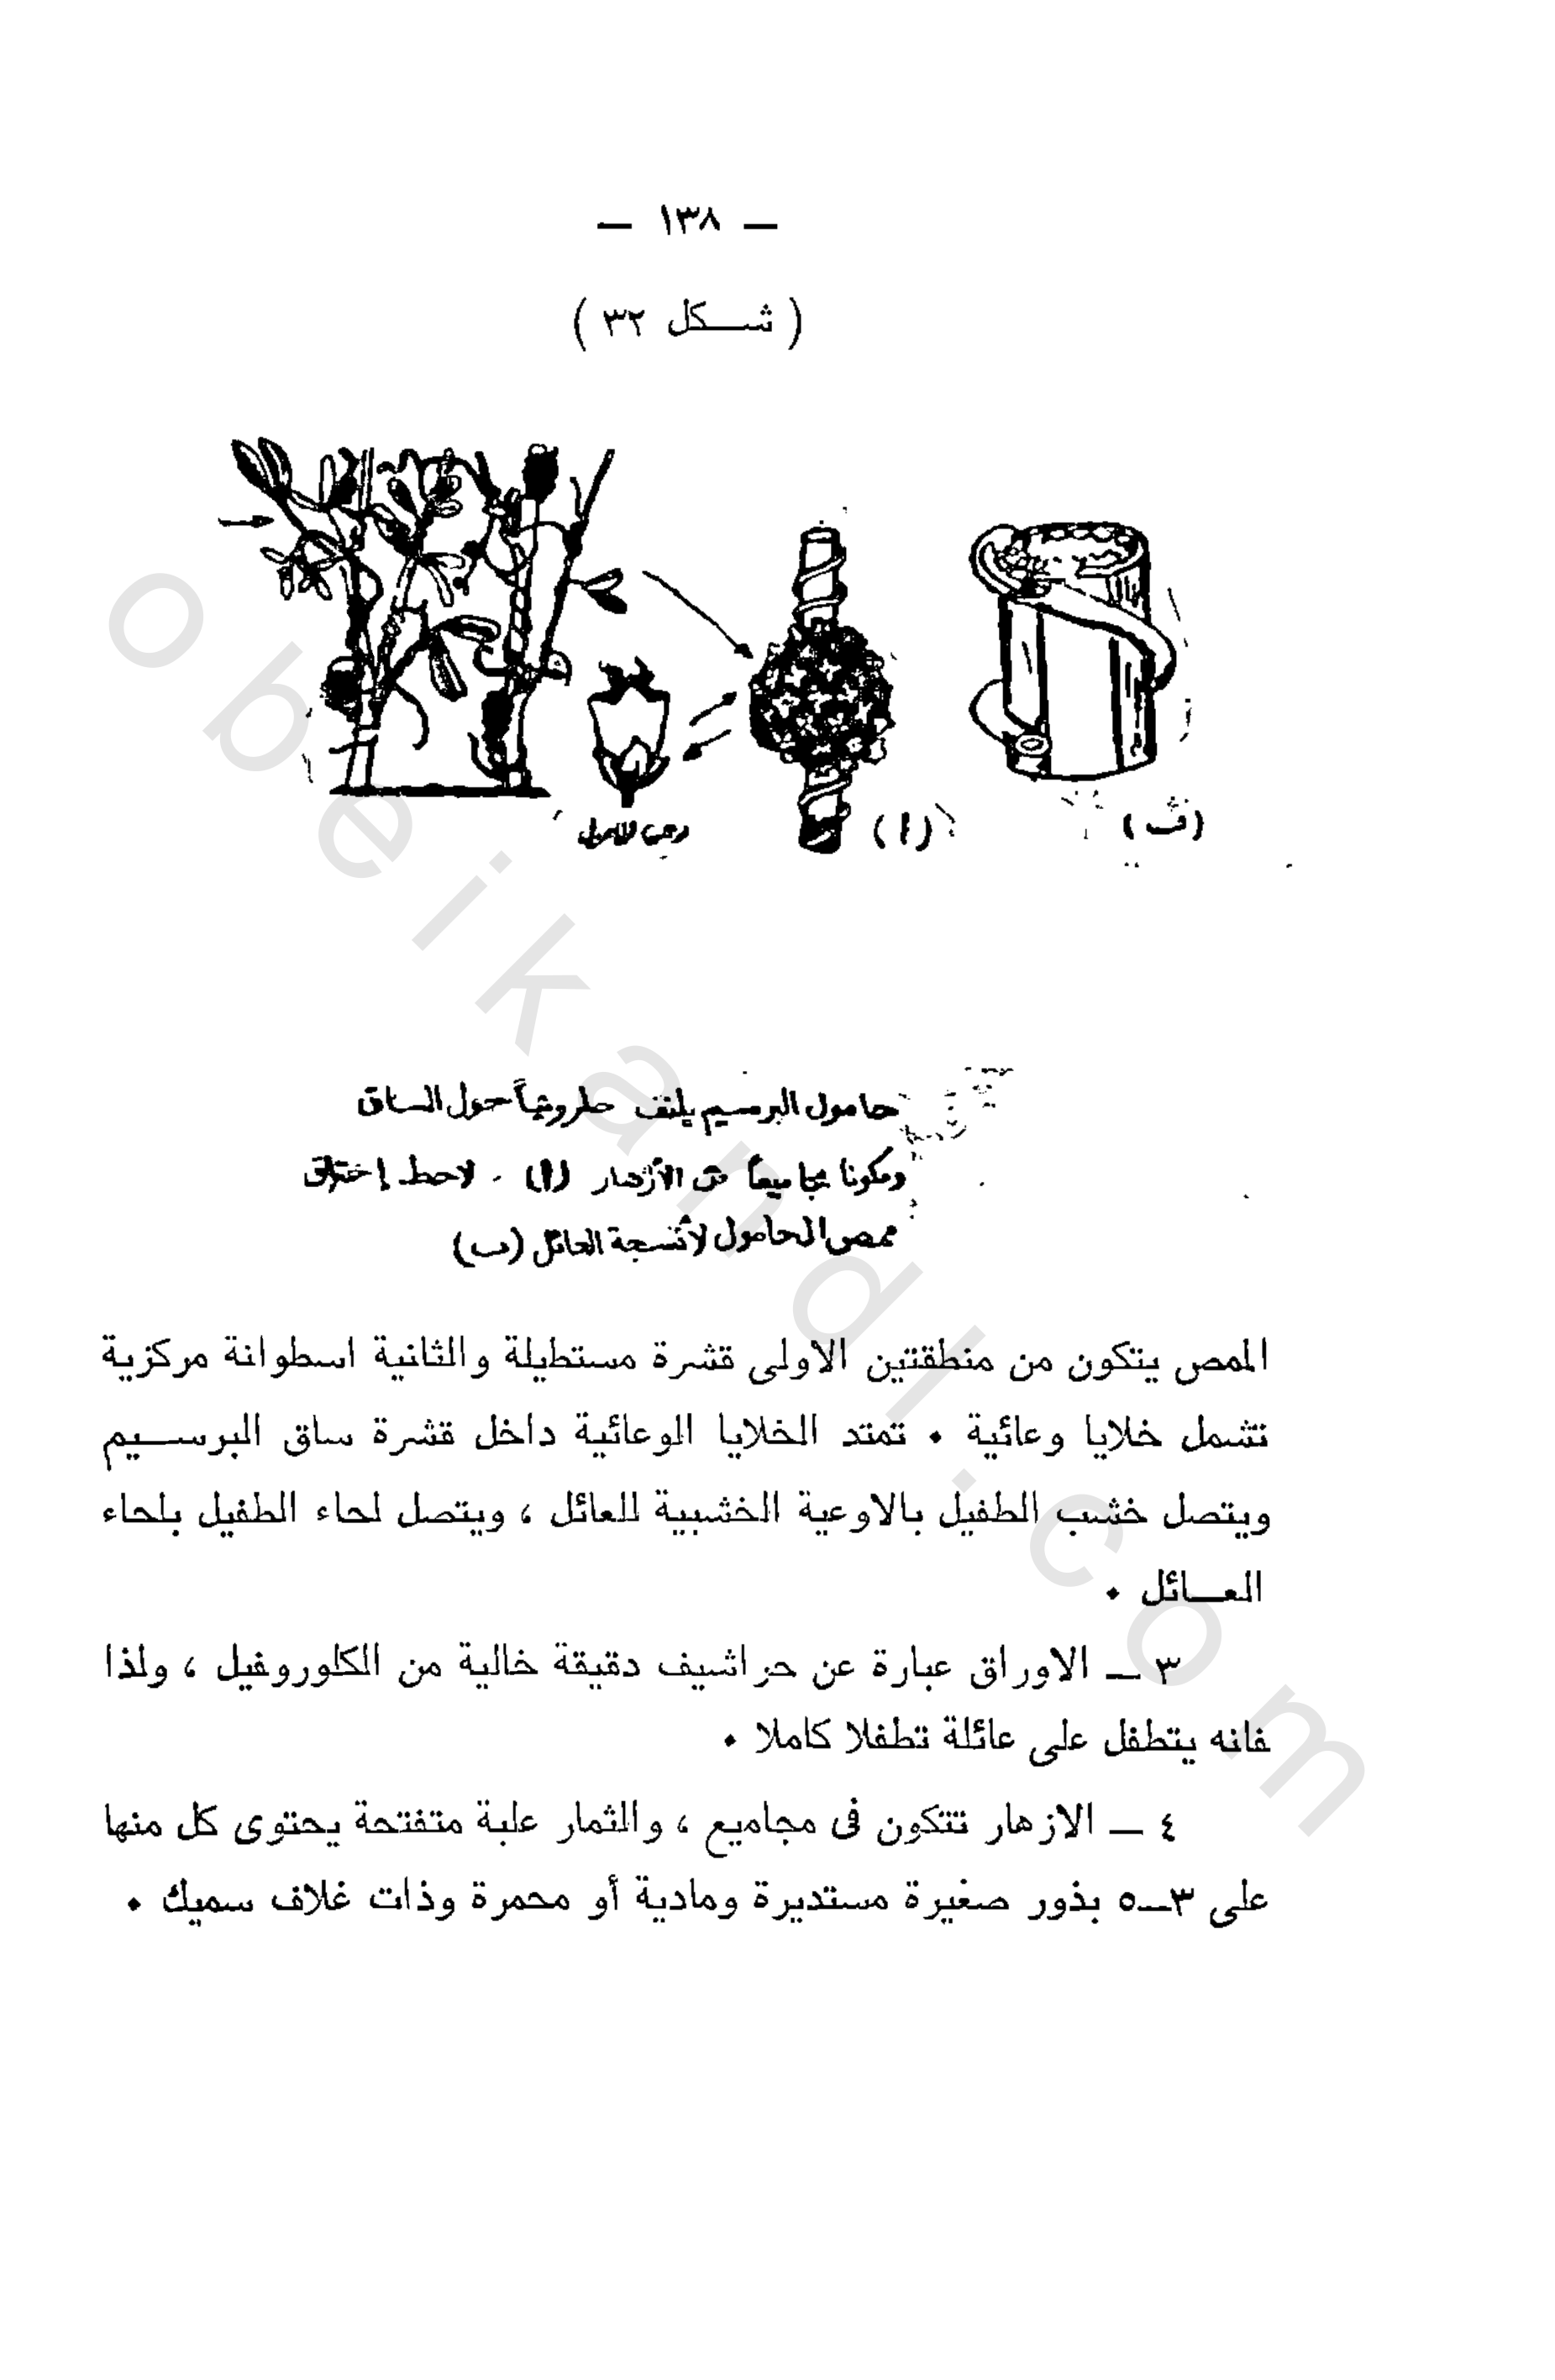 — ١٣٨ —
( شـــكل ٣٢ )
(ا)
(ب)
حامول البرسيم يلتف حلزونياً حول الساق
ومكونا مجاميعاً من الأزهار (ا) . لاحظ إختراق
ممص الحامول لأنسجة العائل (ب)
الممص يتكون من منطقتين الاولى قشرة مستطيلة والثانية اسطوانة مركزية
تشمل خلايا وعائية . تمتد الخلايا الوعائية داخل قشرة ساق البرســيم
ويتصل خشب الطفيل بالاوعية الخشبية للعائل ، ويتصل لحاء الطفيل بلحاء
العــائل .
٣ — الاوراق عبارة عن حراشيف دقيقة خالية من الكلوروفيل ، ولذا
فانه يتطفل على عائلة تطفلا كاملا .
٤ — الازهار تتكون فى مجاميع ، والثمار علبة متفتحة يحتوى كل منها
على ٣—٥ بذور صغيرة مستديرة ومادية أو محمرة وذات غلاف سميك .
obeikandl.com